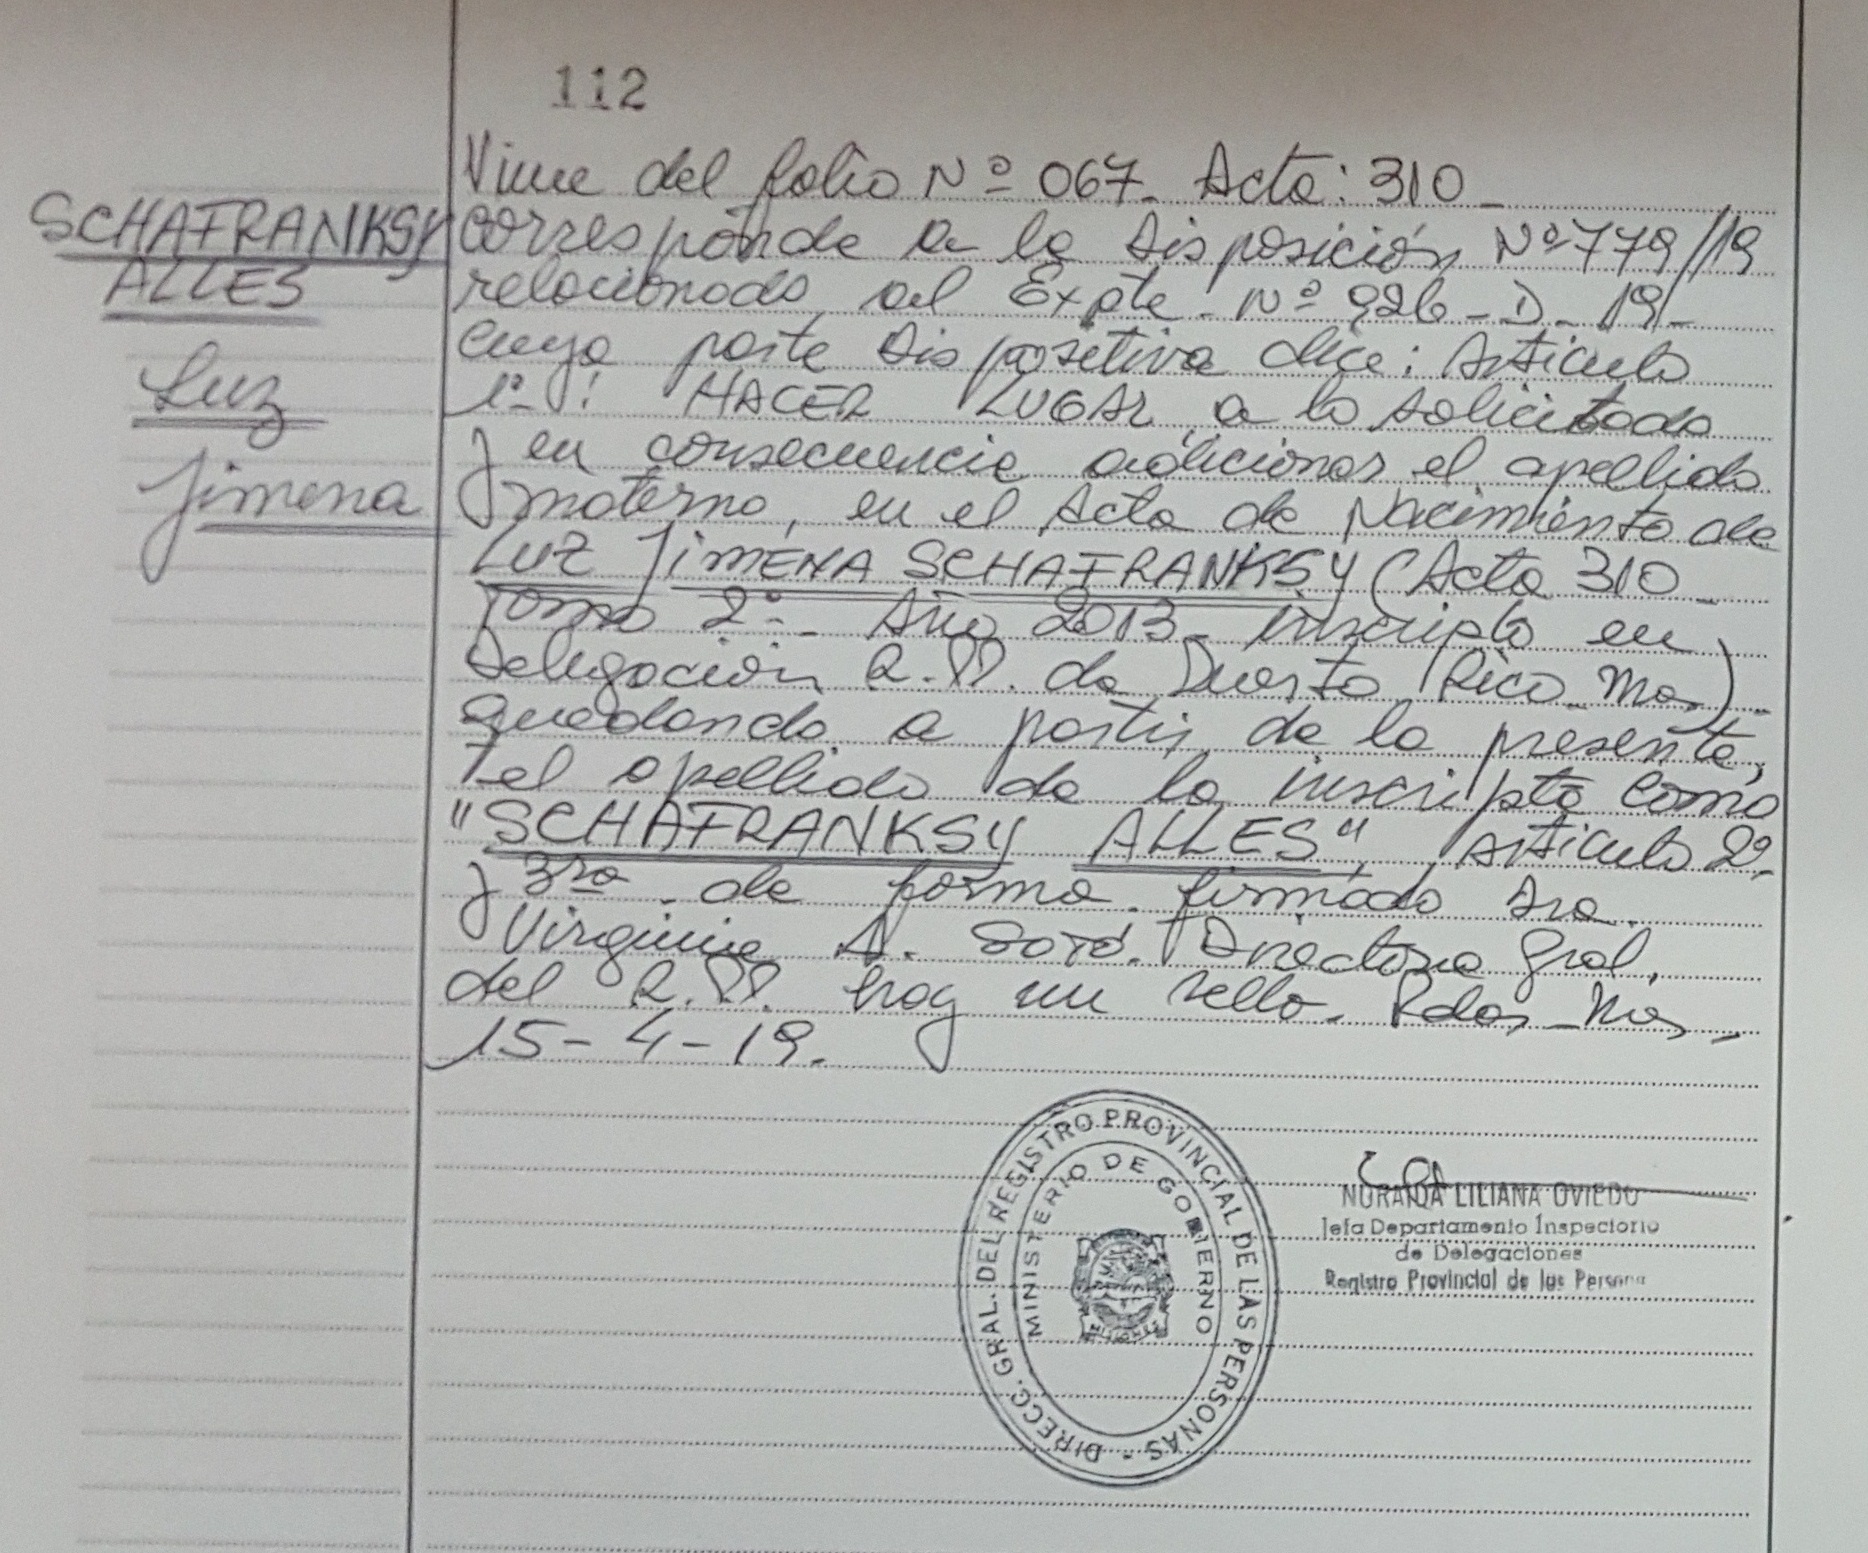 112
SCHAFRANKSY
ALLES
Luz
Jimena
Viene del folio Nº 067. Acta: 310_
corresponde a la Disposición Nº 779/19
relacionado al Expte. Nº 926_D_19_
cuya parte dispositiva dice: Articulo
1º: HACER LUGAR a lo solicitado
y en consecuencia adicionar el apellido
materno, en el Acta de Nacimiento de
LUZ JIMENA SCHAFRANKSY (Acta 310_
Tomo 2º_ Año 2013_ inscripta en
Delegación R.PP. de Puerto Rico_Mnes)_
quedando a partir de la presente,
el apellido de la inscripta como
"SCHAFRANKSY ALLES", Articulo 2º
y 3ro. de forma. firmado Sra.
Virginia A. Soto. Directora Gral.
del R.PP. hay un sello. Pdas_Mnes,
15-4-19.
DIRECC. GRAL. DEL REGISTRO PROVINCIAL DE LAS PERSONAS -
MINISTERIO DE GOBIERNO
MISIONES
NORAIDA LILIANA OVIEDO
Jefa Departamento Inspectorio
de Delegaciones
Registro Provincial de las Persona